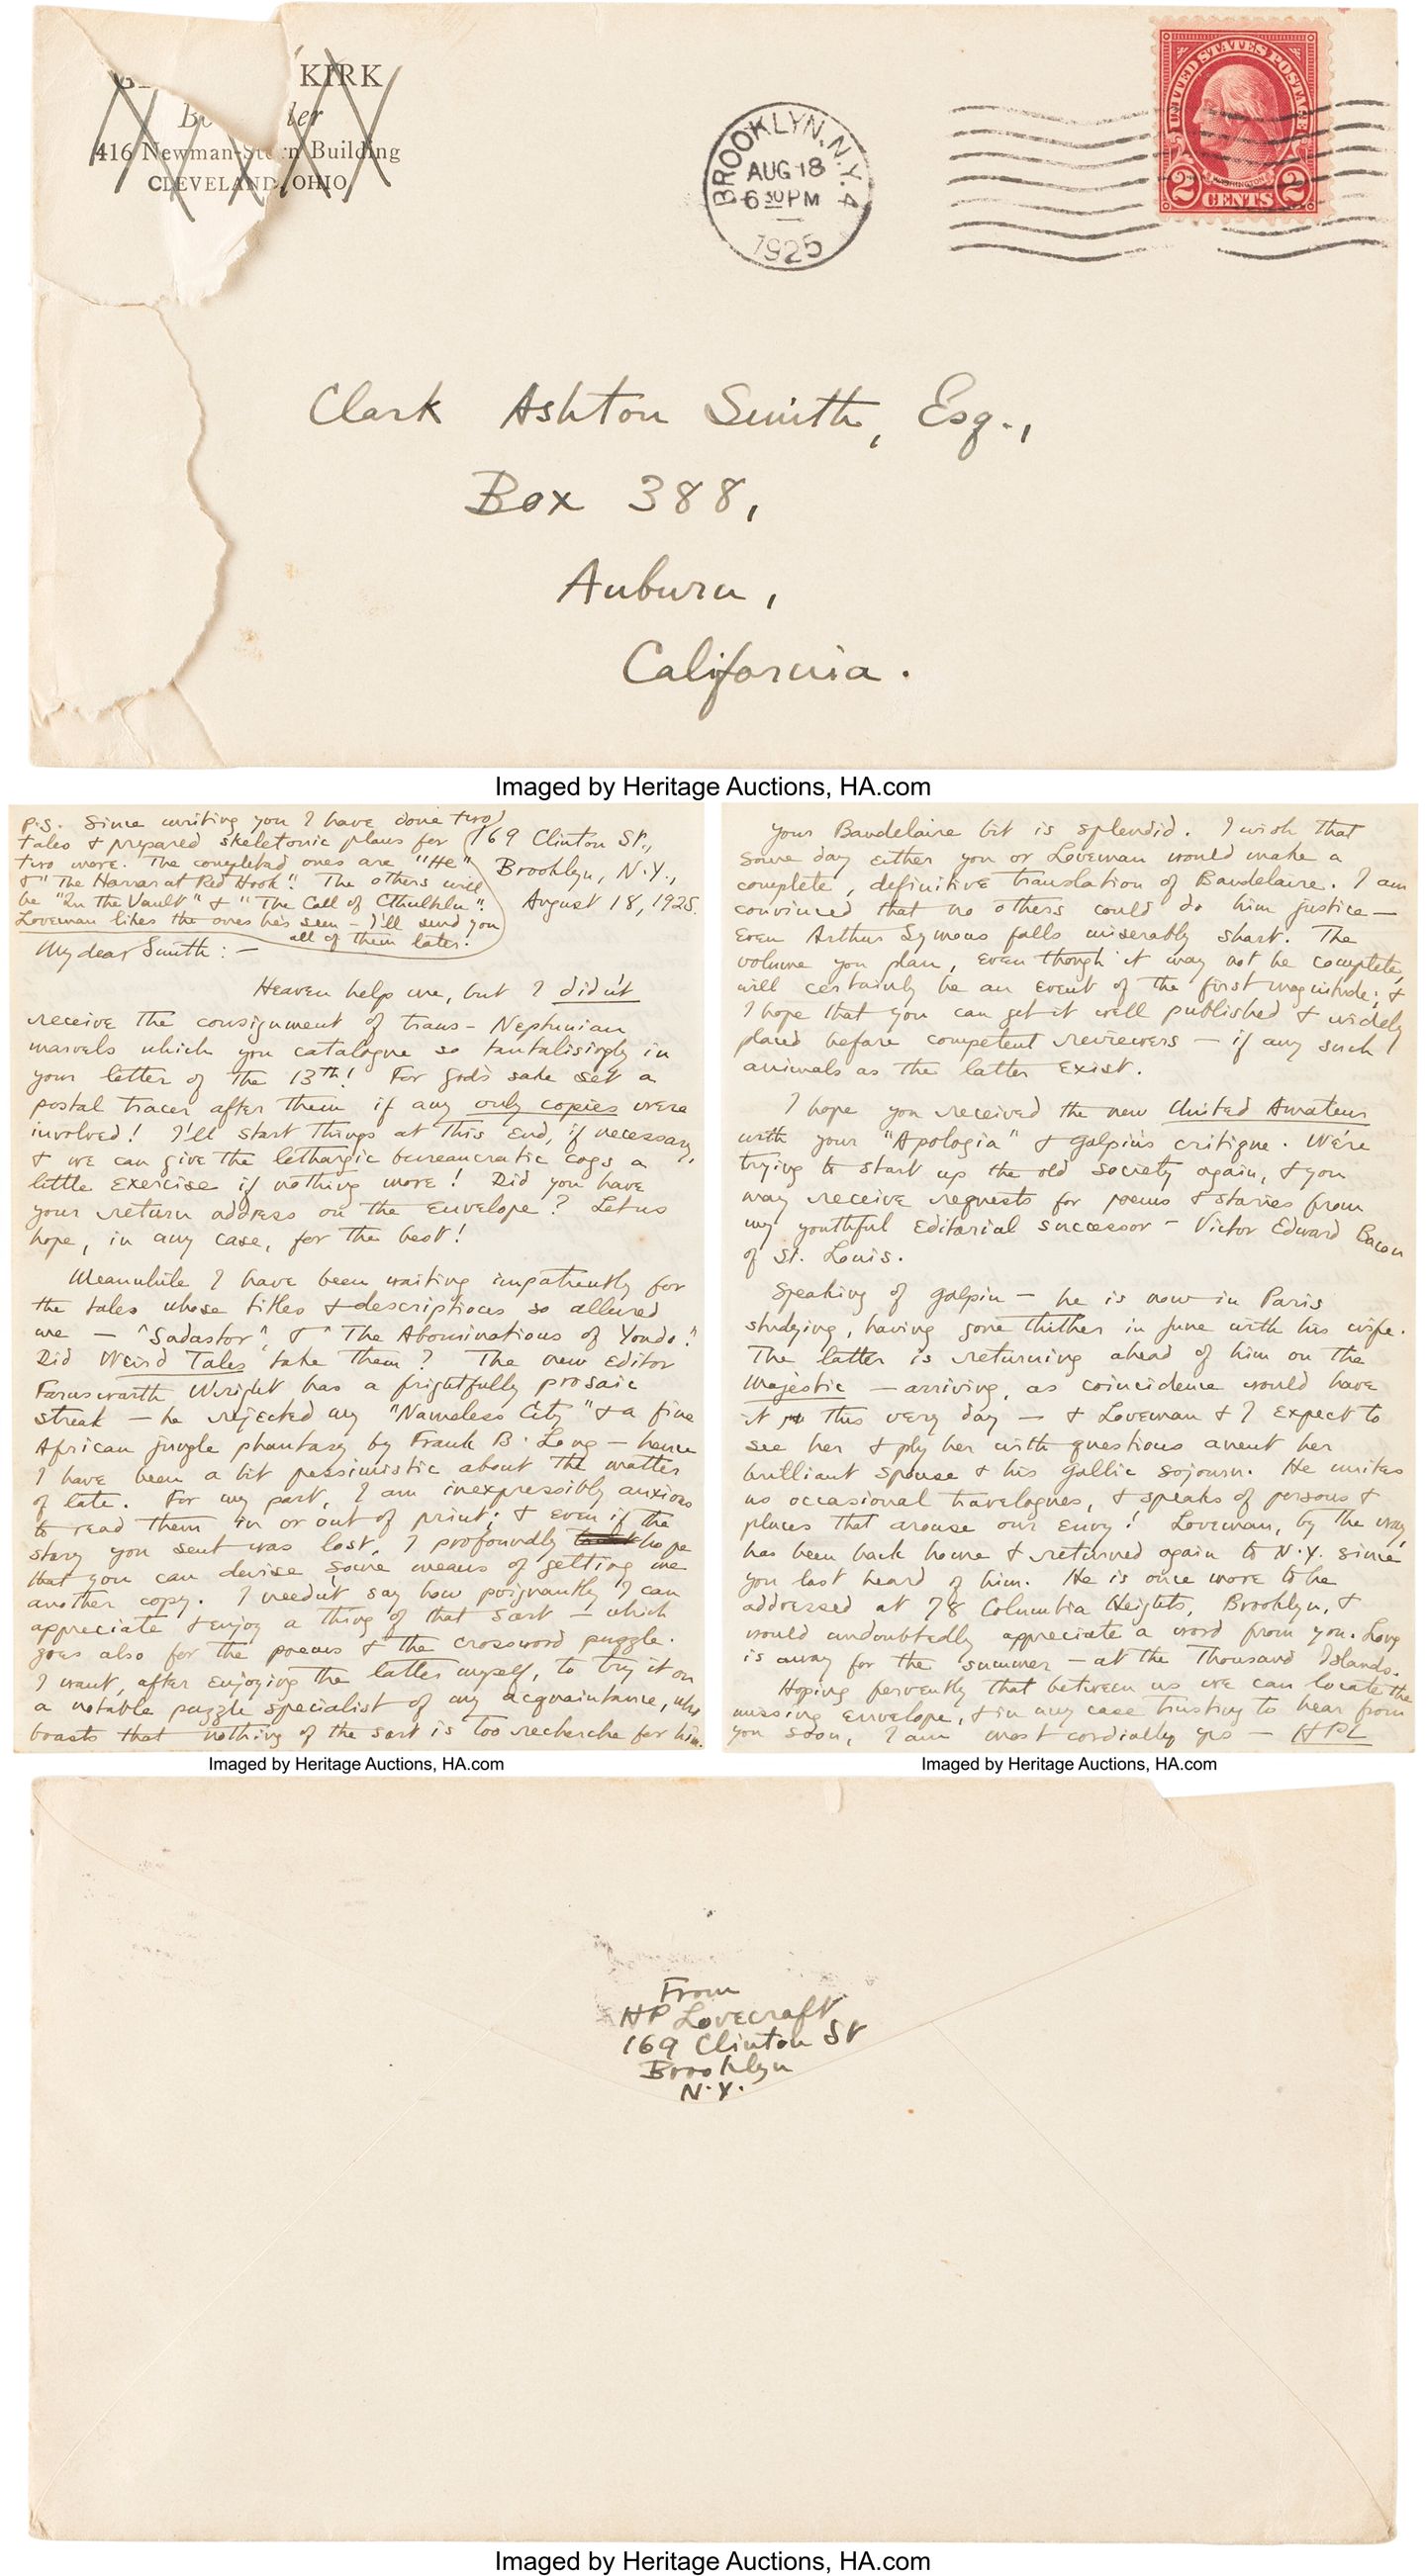 KIRK
416 Newman-Stern Building
CLEVELAND, OHIO
BROOKLYN, N.Y. 4
AUG 18
6 30 PM
1925
UNITED STATES POSTAGE
WASHINGTON
2 CENTS 2
Clark Ashton Smith, Esq.,
Box 388,
Auburn,
California.
Imaged by Heritage Auctions, HA.com
P.S. Since writing you I have done two
tales & prepared skeletonic plans for
two more. The completed ones are "He"
& "The Horror at Red Hook". The others will
be "In the Vault" & "The Call of Cthulhu".
Loveman likes the ones he's seen — I'll send you
all of them later.
169 Clinton St.,
Brooklyn, N.Y.,
August 18, 1925.
My dear Smith:—
Heaven help me, but I didn't
receive the consignment of trans-Neptunian
marvels which you catalogue so tantalisingly in
your letter of the 13th! For god's sake set a
postal tracer after them if any only copies were
involved! I'll start things at this end, if necessary,
& we can give the lethargic bureaucratic cogs a
little exercise if nothing more! Did you have
your return address on the envelope? Let us
hope, in any case, for the best!
Meanwhile I have been waiting impatiently for
the tales whose titles & descriptions so allured
me — "Sadastor", & "The Abominations of Yondo."
Did Weird Tales take them? The new editor
Farnsworth Wright has a frightfully prosaic
streak — he rejected my "Nameless City" & a fine
African jungle phantasy by Frank B. Long — hence
I have been a bit pessimistic about the matter
of late. For my part, I am inexpressibly anxious
to read them in or out of print; & even if the
story you sent was lost, I profoundly hope
that you can devise some means of getting me
another copy. I needn't say how poignantly I can
appreciate & enjoy a thing of that sort — which
goes also for the poems & the crossword puzzle.
I want, after enjoying the latter myself, to try it on
a notable puzzle specialist of my acquaintance, who
boasts that nothing of the sort is too recherche for him.
Imaged by Heritage Auctions, HA.com
Your Baudelaire bit is splendid. I wish that
some day either you or Loveman would make a
complete, definitive translation of Baudelaire. I am
convinced that no others could do him justice —
even Arthur Symons falls miserably short. The
volume you plan, even though it may not be complete,
will certainly be an event of the first magnitude; &
I hope that you can get it well published & widely
placed before competent reviewers — if any such
animals as the latter exist.
I hope you received the new United Amateur
with your "Apologia" & Galpin's critique. We're
trying to start up the old society again, & you
may receive requests for poems & stories from
my youthful editorial successor — Victor Edward Bacon
of St. Louis.
Speaking of Galpin — he is now in Paris
studying, having gone thither in June with his wife.
The latter is returning ahead of him on the
Majestic — arriving, as coincidence would have
it, this very day — & Loveman & I expect to
see her & ply her with questions anent her
brilliant spouse & his Gallic sojourn. He writes
us occasional travelogues, & speaks of persons &
places that arouse our envy! Loveman, by the way,
has been back home & returned again to N.Y. since
you last heard of him. He is once more to be
addressed at 78 Columbia Heights, Brooklyn, &
would undoubtedly appreciate a word from you. Long
is away for the summer — at the Thousand Islands.
Hoping fervently that between us we can locate the
missing envelope, & in any case trusting to hear from
you soon, I am most cordially yrs — HPL
Imaged by Heritage Auctions, HA.com
From
HP Lovecraft
169 Clinton St
Brooklyn
N.Y.
Imaged by Heritage Auctions, HA.com